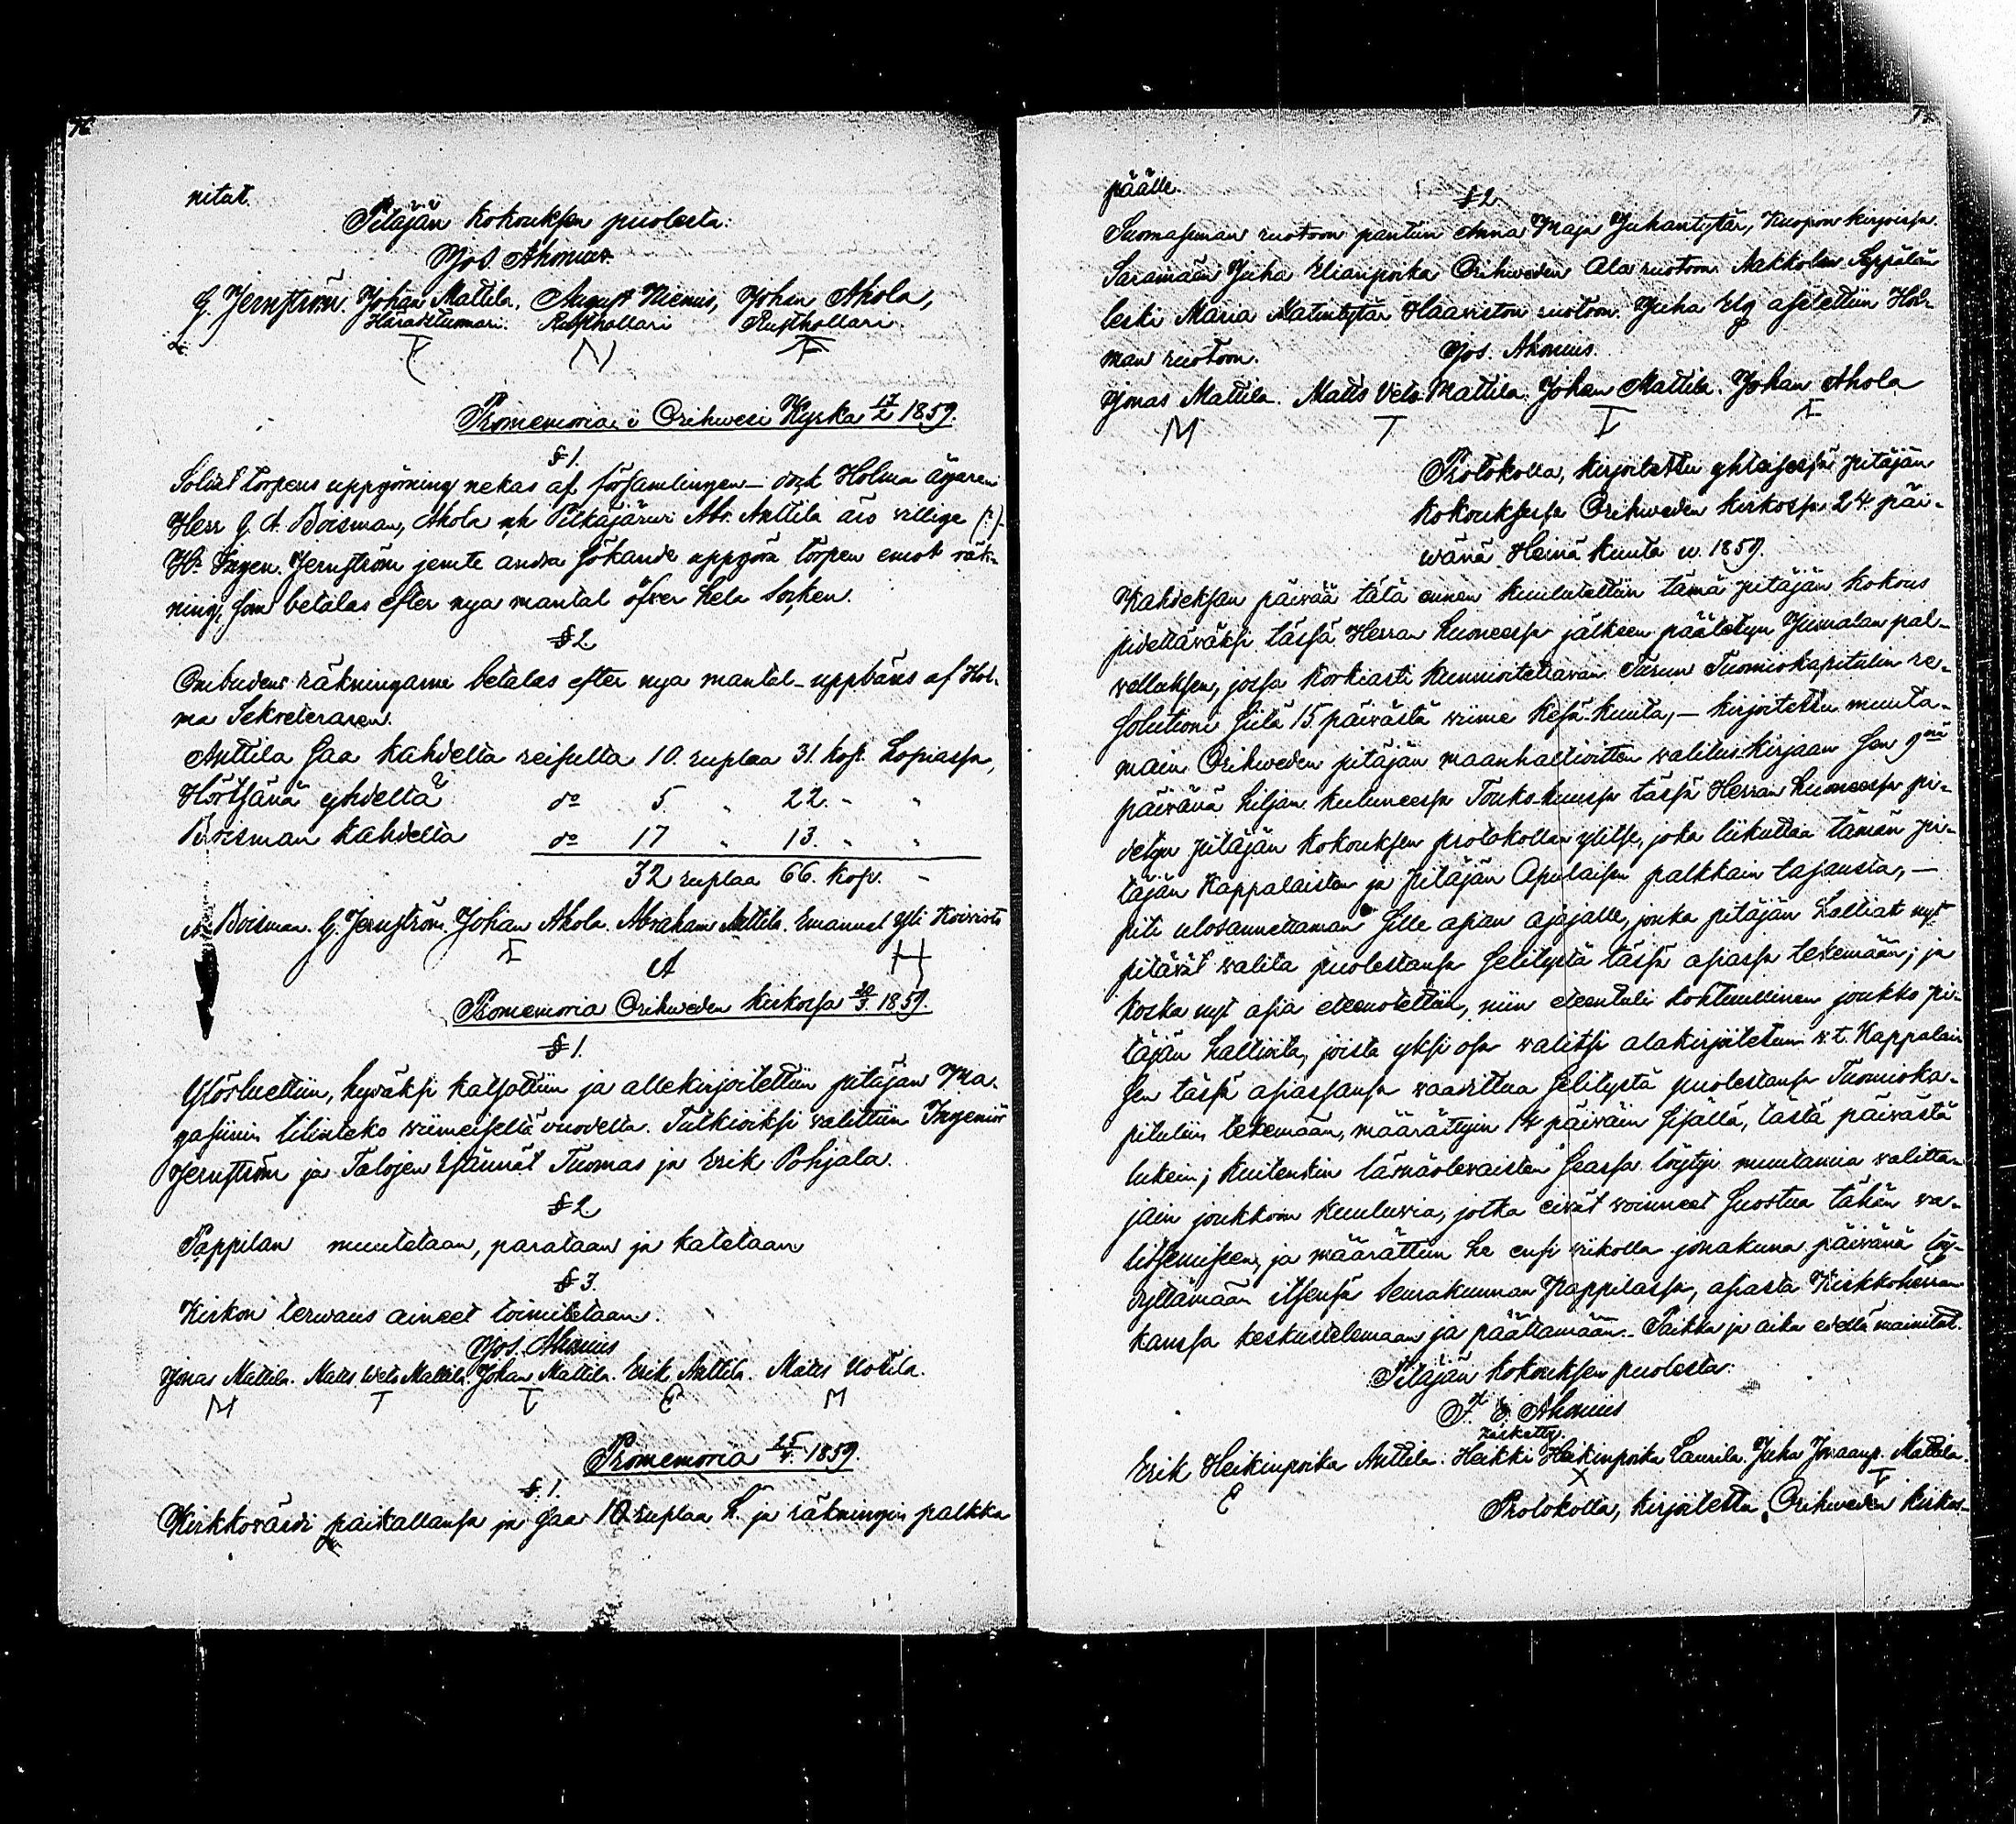 76
nitat.
Pitäjän kokouksen puolesta:
Jos. Ahonius
G. Jernström. Johan Mattila, August Niemis, Johan Ahola,
Häradstuomari. Rusthollari Rusthollari
Promemoria i Orihwesi Kyrka 17/2 1859.
§ 1.
torpens uppgörning nekas af församlingen – dock Holma ägaren
Herr G. A. Boisman, Ahola och Pitkäjärwi Abr. Anttila äro villige (?)
Hr Ingen. Jernström jemte andra sökande uppgöra torpen emot räk-
ning, som betalas efter nya mantal öfver hela Socken.
§ 2
Ombudens räkningarne betalas efter nya mantal – uppbäres af Hol-
ma Sekreteraren.
Anttila saa kahdelta reisulta 10. ruplaa 31. kop. hopiassa,
Hörtsänä yhdeltä do 5. " 22. " "
Boisman kahdelta do 17 " 13. " "
32 ruplaa 66. kop. "
A. Boisman. G. Jernström. Johan Ahola. Abraham Anttila. Emanuel Yli Koivisto
I A H
Promemoria Orihweden kirkossa 20/3. 1859.
§ 1.
Ylösluettiin, hyväksi katsottiin ja allekirjoitettiin pitäjän Ma-
gasiinin tilinteko wiimeiseltä vuodelta. Tutkioiksi valittiin Ingeniör
Jernström ja Talojen Isännät Tuomas ja Erik Pohjala.
§ 2
Pappilan muutetaan, parataan ja katetaan
§ 3.
Kirkon terwaus aineet toimitetaan.
Jos. Ahonius
Jonas Mattila. Matts Welo Mattila. Johan Mattila. Erik Anttila. Matts Uotila.
M T I E M
Promemoria 25/4. 1859.
§. 1.
Kirkkovärdi paikallansa ja saa 10 ruplaa h. ja räkningin palkka
päälle.
§ 2
Suomasman ruotoon pantiin Anna Maja Juhantytär, Kuopion kirjoissa.
Saramäen Juha Elianpoika Orihweden Ala ruotoon. Nakkolan Seppälän
leski Maria Matintytär Haaviston ruotoon. Juha Elg asetettiin Hol-
man ruotoon.
Jos. Ahonius.
Jonas Mattila. Matts Velo Mattila. Johan Mattila. Johan Ahola
M T I I
Protokolla, kirjoitettu yhteisessä pitäjän
kokouksessa Orihweden kirkossa 24. päi-
wänä Heinä kuuta w. 1859.
Kahdeksan päivää tätä ennen kuulutettiin tämä pitäjän kokous
pidettäväksi tässä Herran huoneessa jälkeen päätetyn Jumalan pal-
velluksen, jossa korkiasti kunnioitettavan Turun Tuomiokapitulin re-
solutioni siitä 15 päivästä wiime kesä-kuuta, – kirjoitettu muuta-
main Orihweden pitäjän maanhaltioitten valitus-kirjaan sen 9nä
päivänä hiljan kuluneessa Touko-kuussa tässä Herran huoneessa pi-
detyn pitäjän kokouksen protokollan ylitse, joka liikuttaa tämän pi-
täjän Kappalaisten ja Pitäjän Apulaisen palkkain tasausta, –
piti ulosannettaman sille asian ajajalle, jonka pitäjän haltiat nyt
pitävät walita puolestansa selitystä tässä asiassa tekemään; ja
koska nyt asia eteenotettiin, niin eteentuli kohtuullinen joukko pi-
täjän haltioita, joista yksi osa valitsi alakirjoitetun w.t. Kappalai-
sen tässä asiassansa waadittua selitystä puolestansa Tuomioka-
pituliin tekemään, määrättyin 14 päiväin sisällä, tästä päivästä
lukein; kuitenkin läsnäolevaisten seassa löytyi muutamia valitta-
jain joukkoon kuuluvia, jotka eivät voinneet suostua tähän va-
litsemiseen, ja määrättiin he ensi wiikolla jonakuna päivänä löy-
dyttämään itsensä Seurakunnan Pappilassa, asiasta Kirkkoherran
kanssa keskustelemaan ja päättämään. Paikka ja aika edellä mainitut.
Pitäjän kokouksen puolesta:
F. E. Ahonius
käskettu.
Erik Heikinpoika Anttila. Heikki Heikinpoika Laurila. Juha Joraanp. Mattila.
E X I
Protokolla, kirjoitettu Orihweden kirkos-